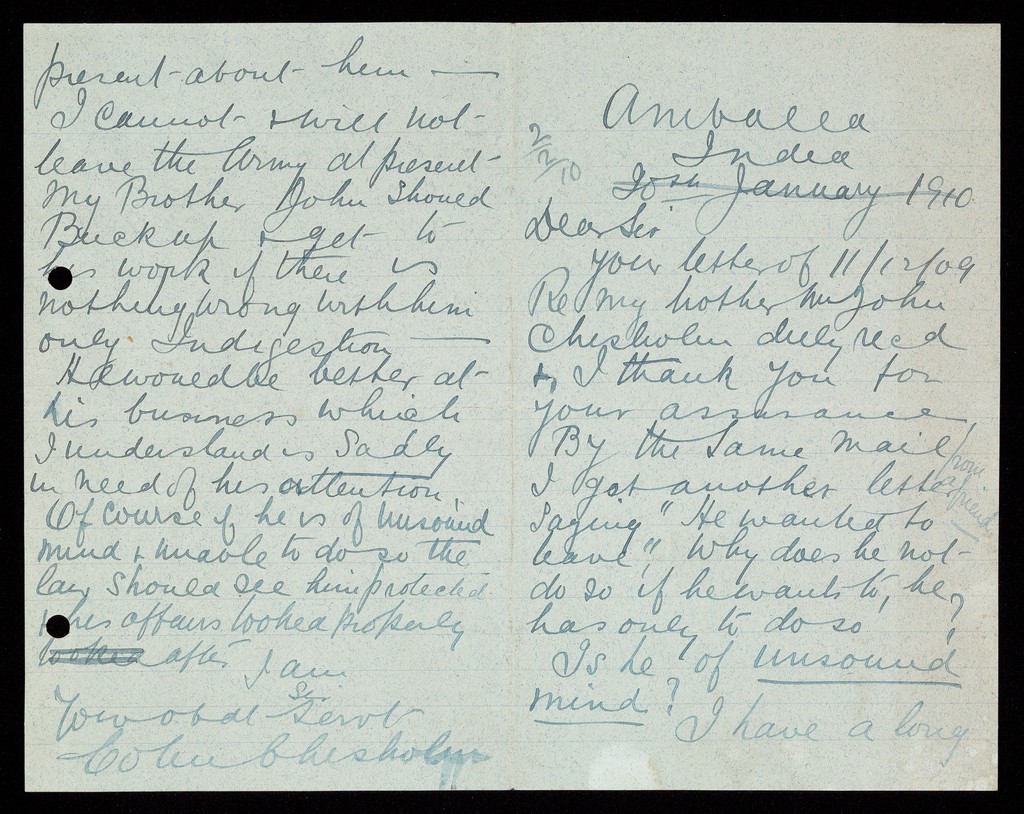 Amballa
India
2/2/10
20th January 1910
Dear Sir
Your letter of 11/12/09
Re My brother Mr John
Chisholm duly recd
& I thank you for
your assurance
By the same mail
I got another letter from a friend
saying "He wanted to
leave", Why does he not
do so if he wants to, he,
has only to do so
Is he, of unsound
mind?
I have a long
present about him —
I cannot & will not
leave the Army at present
My Brother John should
Buck up & get to
his work if there is
nothing wrong with him
only Indigestion —
He would be better at
his business which
I understand is sadly
in need of his attention.
Of course if he is of unsound
mind & unable to do so the
law should see him protected
& his affairs looked properly
looked after
I am
Sir
Your obdt Servt
Colin Chisholm